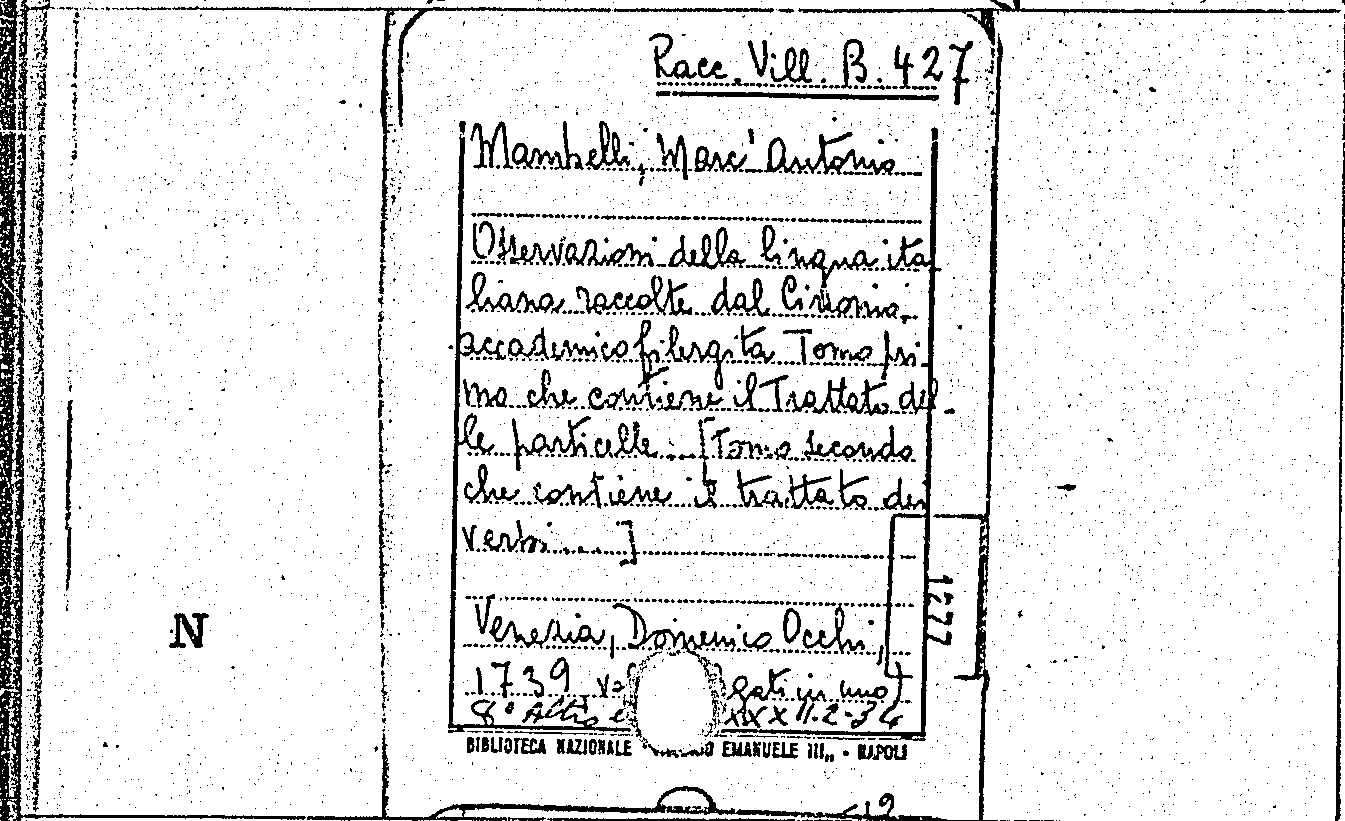 Racc. Vill. B. 427
Mambelli, Marc'Antonio
Osservazioni della lingua ita
liana raccolte dal Cinonio,
accademico filergita Tomo pri
mo che contiene il Trattato del-
le particelle ... [Tomo secondo
che contiene il trattato dei
verbi ... ]
Venezia, Domenico Occhi,
1739, gati in uno
8° Altro XXXII.2-34
BIBLIOTECA NAZIONALE EMANUELE III„ - NAPOLI
1277
N
12